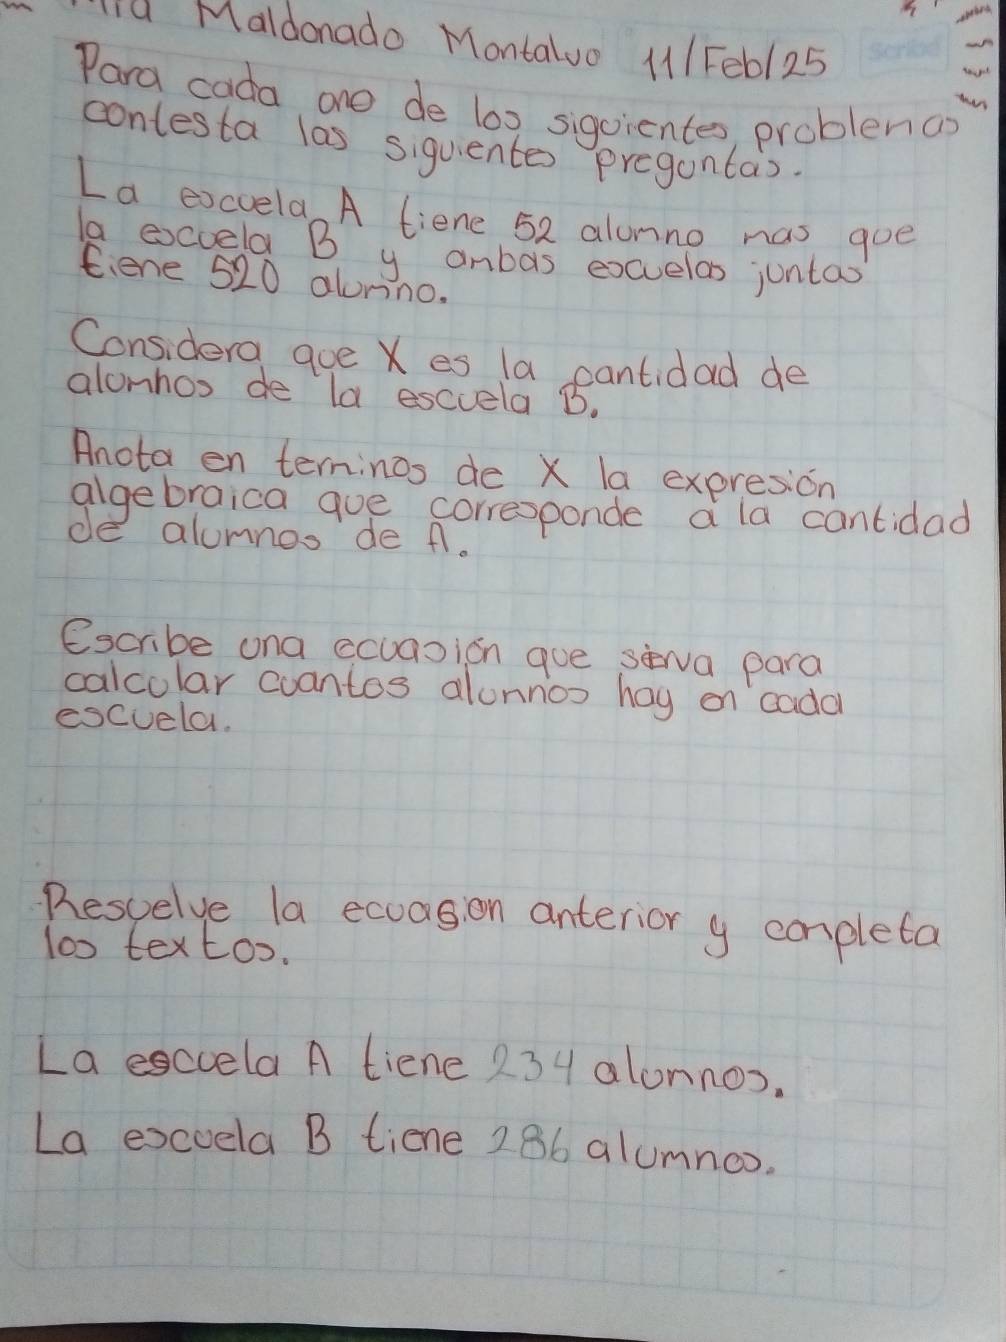 Maldonado Montalvo 11/Feb/25
Para cada uno de los siguientes problemas
contesta las siguientes preguntas.
La escuela A tiene 52 alumno mas que
la escuela B y ambas escuelas juntas
tiene 520 alumno.
Considera que X es la cantidad de
alumnos de la escuela B.
Anota en terminos de X la expresión
algebraica que corresponde a la cantidad
de alumnos de A.
Escribe una ecuasión que sirva para
calcular cuantos alumnos hay en cada
escuela.
Resuelve la ecuasion anterior y completa
los textos.
La escuela A tiene 234 alumnos.
La escuela B tiene 286 alumnos.